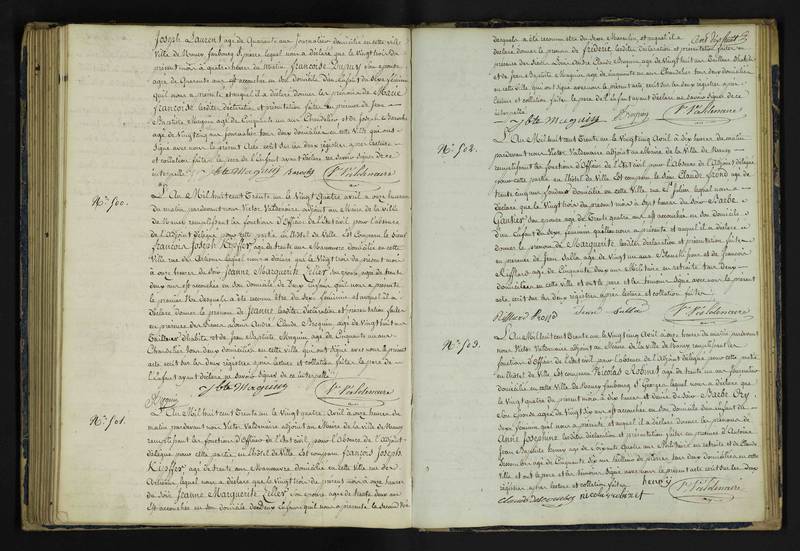 Joseph Laurent agé de Quarante ans Journalier domicilié en cette ville
Ville de Nancy faubourg St pierre lequel nous a déclaré que le Vingt trois du
présent mois à quatre heures du Matin françoise Dupuy son épouse
agée de Quarante ans est accouchée en son domicile d'un Enfant du Sexe féminin
qu'il nous a présenté et auquel il a déclaré donner les prénoms de Marie
françoise lesdites déclaration et présentation faites en présence de Jean
Baptiste Maquin agé de Cinquante un ans Chandelier et de Joseph
agé de Vingt cinq ans Journalier tous deux domiciliés en cette Ville qui ont
Signé avec nous le présent Acte écrit sur les deux régistres après Lecture
et collation faites, le père de l'Enfant ayant déclaré ne Savoir Signer de ce
interpellé
Jbte Maquin Vr Valdenaire
No 500.
L'An Mil huit cent Trente un le Vingt Quatre avril à onze heures
du matin pardevant nous Victor Valdenaire adjoint au Maire de la ville
de Nancy remplissant les fonctions d'Officier de l'Etat civil pour l'absence
de l'Adjoint délégué pour cette partie en l'hôtel de Ville Est Comparu le Sieur
françois Joseph Kieffer agé de trente ans Manœuvre domicilié en cette
Ville rue de lequel nous a déclaré que le Vingt trois du présent mois
à onze heures du Soir Jeanne Marguerite Zeller son épouse agée de trente
deux ans est accouchée en son domicile de Deux Enfans qu'il nous a présenté
le premier Né desquels a été reconnu être du Sexe féminin et auquel il a
déclaré donner le prénom de Jeanne lesdites déclaration et présentation faites
en présence des Sieurs Louis André Claude Bregnin agé de Vingt huit ans
Tailleur d'habits et de Jean Baptiste Maquin agé de Cinquante un ans
Chandelier tous deux domiciliés en cette ville qui ont Signé avec nous le présent
acte écrit sur les deux régistres après lecture et collation faites le père de
l'Enfant ayant déclaré ne Savoir Signer de ce interpellé
Jbte Maquin Vr Valdenaire
No 501.
L'An Mil huit cent Trente un le Vingt quatre Avril à onze heures du
matin pardevant nous Victor Valdenaire adjoint au Maire de la ville de Nancy
remplissant les fonctions d'Officier de l'Etat civil pour l'absence de l'adjoint
délégué pour cette partie en l'hôtel de Ville Est comparu françois Joseph
Kieffer agé de trente ans Manœuvre domicilié en cette ville rue de
lequel nous a déclaré que le Vingt trois du présent mois à onze heures
du Soir Jeanne Marguerite Zeller Son épouse agée de trente deux ans
est accouchée en son domicile de deux Enfans qu'il nous a présenté le second Né
desquels a été reconnu être du Sexe Masculin et auquel il a
déclaré donner le prénom de frédéric lesdites déclaration et présentation faites en
présence des Sieurs Louis André Claude agé de Vingt huit ans Tailleur d'habits
et de Jean Baptiste Maquin agé de Cinquante un ans Chandelier tous deux domiciliés
en cette ville, qui ont Signé avec nous le présent acte, écrit sur les deux régistres après
Lecture et collation faites le père de l'Enfant ayant déclaré ne Savoir Signer de ce
interpellé
Jbte Maquin Vr Valdenaire
No 502.
L'An Mil huit cent Trente un le Vingt cinq Avril à dix heures du matin
pardevant nous Victor Valdenaire adjoint au Maire de la Ville de Nancy
remplissant les fonctions d'Officier de l'Etat civil pour l'absence de l'adjoint délégué
pour cette partie en l'hôtel de Ville Est comparu le Sieur Claude frond agé de
trente cinq ans domicilié en cette Ville rue St Julien lequel nous a
déclaré que le Vingt trois du présent mois à Sept heures du Soir Barbe
Gautier Son épouse agée de Trente quatre ans est accouchée en Son domicile
d'un Enfant du Sexe féminin qu'il nous a présenté et auquel il a déclaré
donner le prénom de Marguerite lesdites déclaration et présentation faites
en présence de Jean agé de Vingt un ans et de françois
agé de Cinquante deux ans Militaire en retraite tous deux
domiciliés en cette ville et ont le père et les témoins Signé avec nous le présent
acte écrit sur les deux régistres après lecture et collation faites
Vr Valdenaire
No 503.
L'An Mil huit cent Trente un le Vingt cinq Avril à onze heures du matin pardevant
nous Victor Valdenaire, adjoint au Maire de la ville de Nancy remplissant les
fonctions d'Officier de l'Etat civil pour l'absence de l'Adjoint délégué pour cette partie
en l'hôtel de Ville Est comparu Nicolas Robinet agé de trente un ans
domicilié en cette Ville de Nancy faubourg St Georges lequel nous a déclaré que
le Vingt quatre du présent mois à dix heures et demie du Soir Barbe Ory
Son Epouse agée de Vingt Six ans est accouchée en son domicile d'un enfant du
Sexe féminin qu'il nous a présenté et auquel il a déclaré donner les prénoms de
Anne Josephine lesdites déclaration et présentation faites en présence d'Antoine
Jean Baptiste henry agé de Soixante Quatre ans Militaire en retraite et de Claude
agé de Cinquante Six ans tailleur de pierres tous deux domiciliés en cette
Ville et ont le père et les témoins Signé avec nous le présent acte écrit sur les deux
régistres après lecture et collation faites henry Vr Valdenaire
nicolas robinet